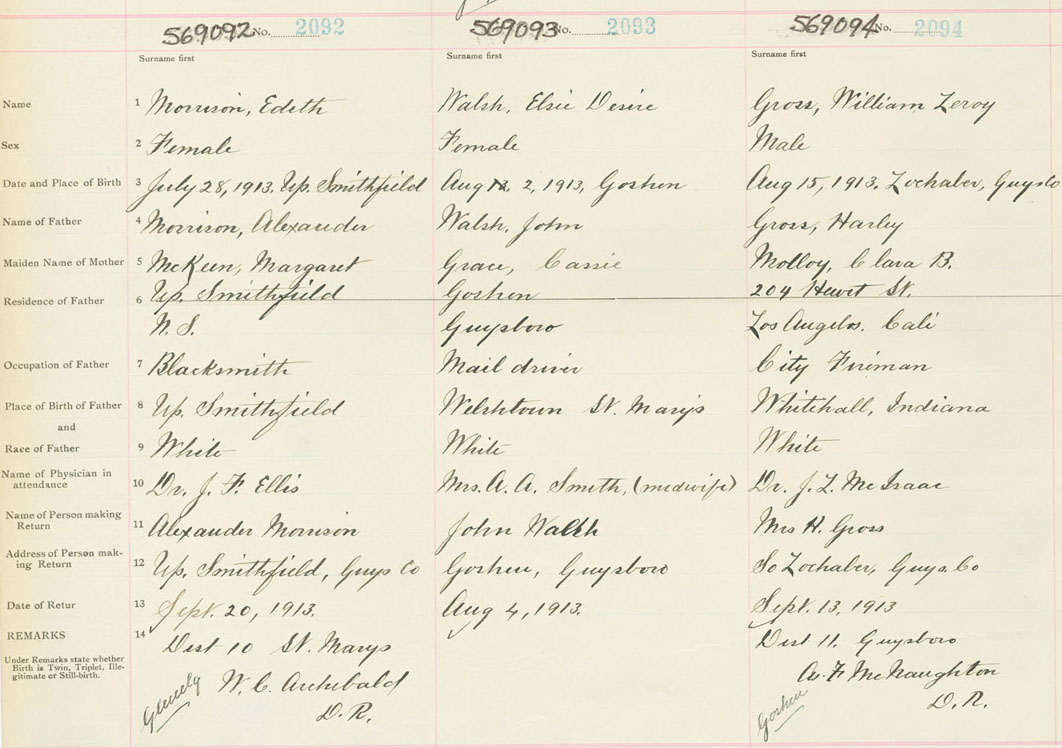 569092 No. 2092 569093 No. 2093 569094 No. 2094
Surname first Surname first Surname first
Name 1 Morrison, Edeth Walsh, Elsie Desire Gross, William Leroy
Sex 2 Female Female Male
Date and Place of Birth 3 July 28, 1913. Up. Smithfield Aug 2, 1913, Goshen Aug 15, 1913. Lochaber, Guys Co
Name of Father 4 Morrison, Alexander Walsh, John Gross, Harley
Maiden Name of Mother 5 McKeen, Margaret Grace, Cassie Molloy, Clara B.
Residence of Father 6 Up. Smithfield Goshen 204 Hewet St.
N.S. Guysboro Los Angelos. Cali
Occupation of Father 7 Blacksmith Mail driver City Fireman
Place of Birth of Father 8 Up. Smithfield Welshtown St. Marys Whitehall, Indiana
and
Race of Father 9 White White White
Name of Physician in
attendance 10 Dr. J. F. Ellis Mrs. A. A. Smith, (midwife) Dr. J. L. McIsaac
Name of Person making
Return 11 Alexander Morrison John Walsh Mrs H. Gross
Address of Person mak-
ing Return 12 Up. Smithfield, Guys Co Goshen, Guysboro So Lochaber, Guys. Co
Date of Retur 13 Sept. 20, 1913. Aug 4, 1913. Sept. 13, 1913
REMARKS 14 Dist 10 St. Marys Dist 11. Guysboro
Under Remarks state whether
Birth is Twin, Triplet, Ille-
gitimate or Still-birth.
W. C. Archibald A. F McNaughton
D. R. D. R.
Glenelg Goshen